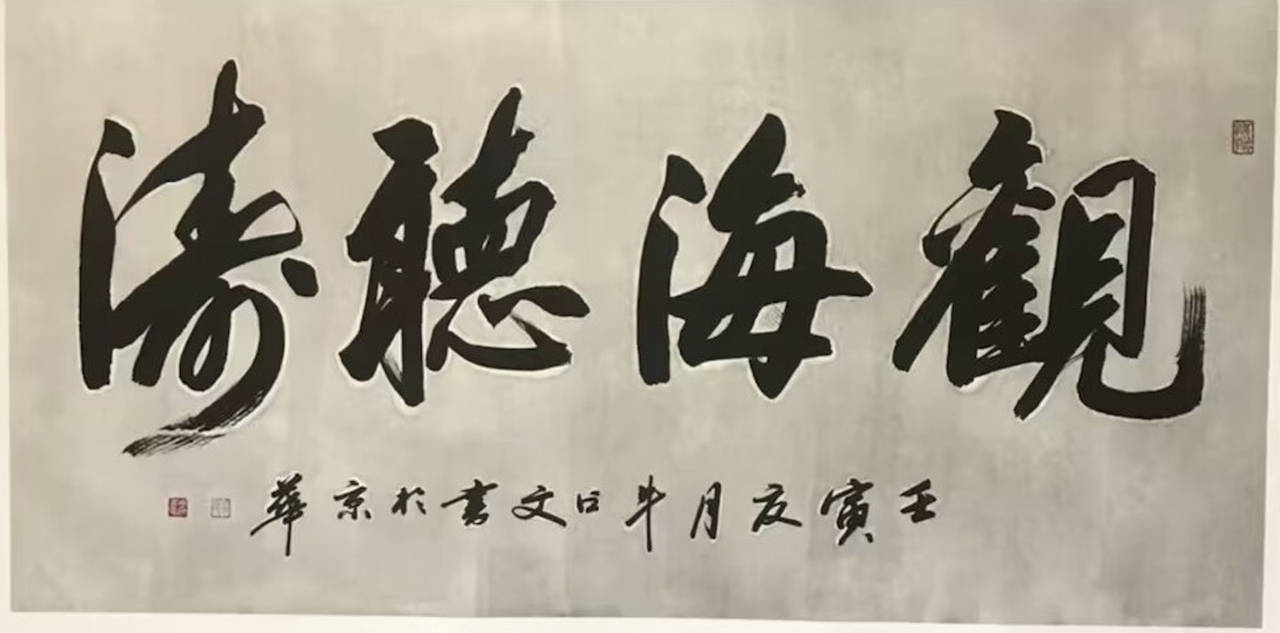 觀海聽濤
壬寅夏月牛口文書於京華